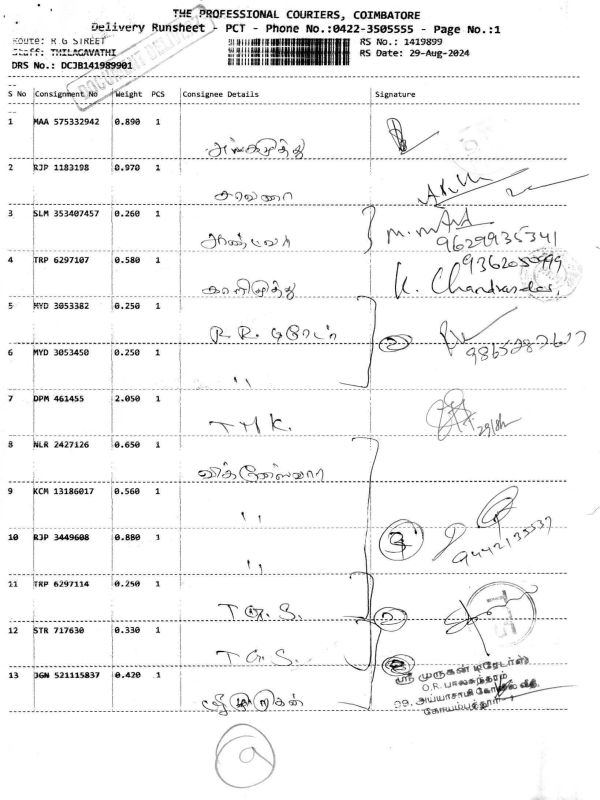 THE PROFESSIONAL COURIERS, COIMBATORE
Delivery Runsheet - PCT - Phone No.:0422-3505555 - Page No.:1
Route: R G STREET
RS No.: 1419899
Staff: THILAGAVATHI
RS Date: 29-Aug-2024
DRS No.: DCJB141989901
S No Consignment No Weight PCS Consignee Details Signature
1 MAA 575332942 0.890 1
அங்காமுத்து
2 RJP 1183198 0.970 1
சரவணா
3 SLM 353407457 0.260 1
9629935341
4 TRP 6297107 0.580 1
9362050999
காளிமுத்து K. Chandrasekar
5 MYD 3053382 0.250 1
R.R. டிரேடர்
6 MYD 3053450 0.250 1
"
7 DPM 461455 2.050 1
T M K. 29/8/
8 NLR 2427126 0.650 1
விக்னேஸ்வரா
9 KCM 13186017 0.560 1
"
10 RJP 3449608 0.880 1
9442135537
"
11 TRP 6297114 0.250 1
12 STR 717630 0.330 1
13 JGN 521115837 0.420 1
ஸ்ரீ முருகன் டிரேடர்ஸ்
O.R. பாலசுந்தரம்